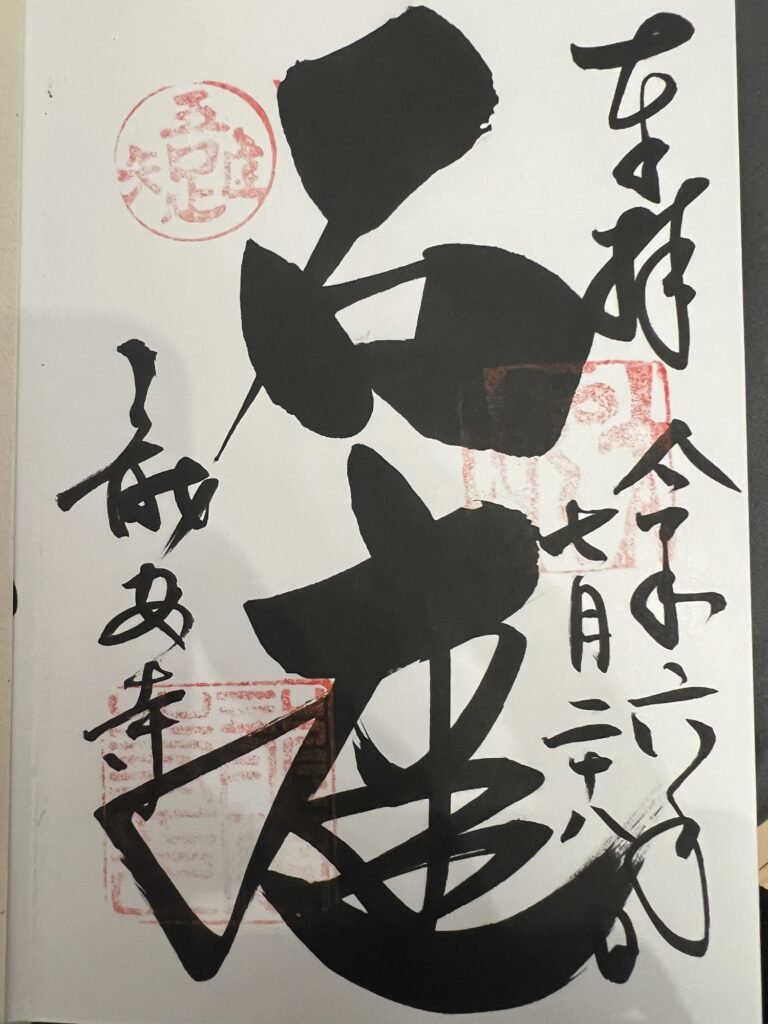 奉拝
令和六年
七月二十八日
石庭
龍安寺
吾唯足知